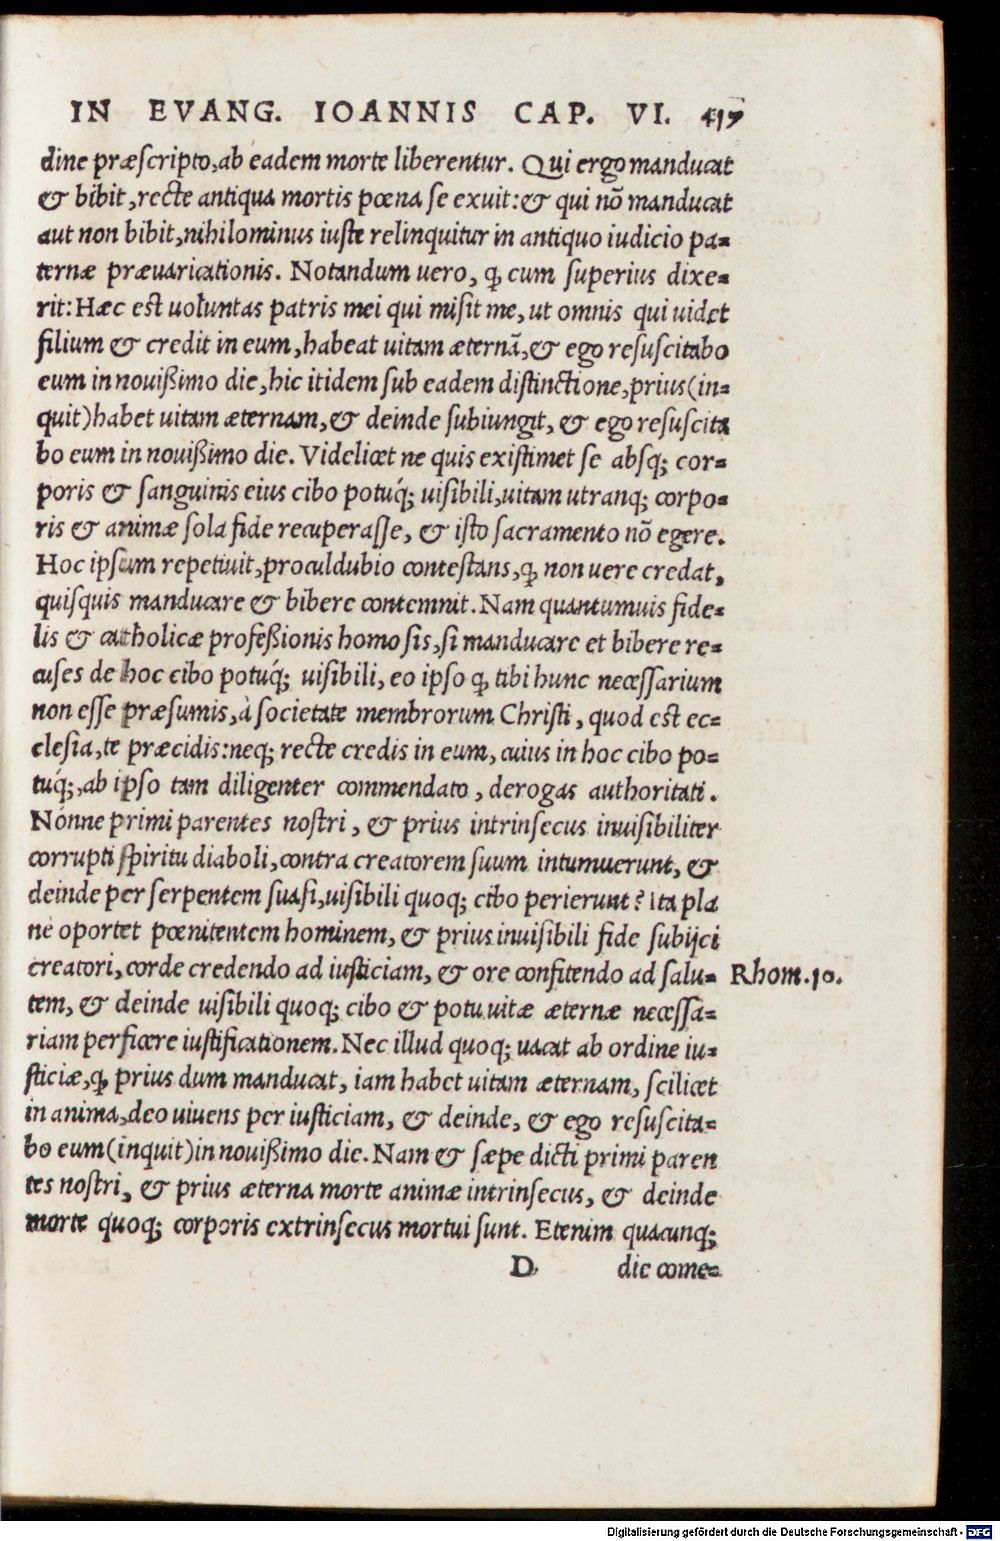 IN EVANG. IOANNIS CAP. VI. 417
dine præscripto, ab eadem morte liberentur. Qui ergo manducat
& bibit, recte antiqua mortis pœna se exuit: & qui nō manducat
aut non bibit, nihilominus iuste relinquitur in antiquo iudicio pa=
ternæ præuaricationis. Notandum uero, ꝙ cum superius dixe=
rit: Hæc est uoluntas patris mei qui misit me, ut omnis qui uidet
filium & credit in eum, habeat uitam æternā, & ego resuscitabo
eum in nouißimo die, hic itidem sub eadem distinctione, prius (in=
quit) habet uitam æternam, & deinde subiungit, & ego resuscita
bo eum in nouißimo die. Videlicet ne quis existimet se absq; cor=
poris & sanguinis eius cibo potuq́; uisibili, uitam utranq; corpo=
ris & animæ sola fide recuperasse, & isto sacramento nō egere.
Hoc ipsum repetiuit, proculdubio contestans, ꝙ non uere credat,
quisquis manducare & bibere contemnit. Nam quantumuis fide=
lis & catholicæ profeßionis homo sis, si manducare et bibere re=
cuses de hoc cibo potuq́; uisibili, eo ipso ꝙ tibi hunc necessarium
non esse præsumis, à societate membrorum Christi, quod est ec=
clesia, te præcidis: neq; recte credis in eum, cuius in hoc cibo po=
tuq́;, ab ipso tam diligenter commendato, derogas authoritati.
Nónne primi parentes nostri, & prius intrinsecus inuisibiliter
corrupti spiritu diaboli, contra creatorem suum intumuerunt, &
deinde per serpentem suasi, uisibili quoq; cibo perierunt? Ita pla
nè oportet pœnitentem hominem, & prius inuisibili fide subijci
creatori, corde credendo ad iusticiam, & ore confitendo ad salu= Rhom. 10.
tem, & deinde uisibili quoq; cibo & potu uitæ æternæ necessa=
riam perficere iustificationem. Nec illud quoq; uacat ab ordine iu=
sticiæ, ꝙ prius dum manducat, iam habet uitam æternam, scilicet
in anima, deo uiuens per iusticiam, & deinde, & ego resuscita=
bo eum (inquit) in nouißimo die. Nam & sæpe dicti primi paren
tes nostri, & prius æterna morte animæ intrinsecus, & deinde
morte quoq; corporis extrinsecus mortui sunt. Etenim quacunq;
D die come=
Digitalisierung gefördert durch die Deutsche Forschungsgemeinschaft - DFG